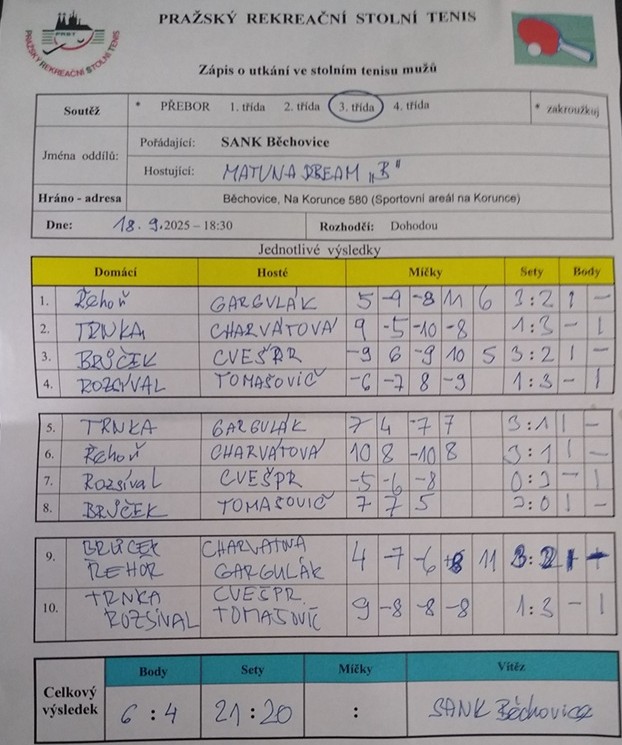 PRAŽSKÝ REKREAČNÍ STOLNÍ TENIS
PRST
PRAŽSKÝ REKREAČNÍ STOLNÍ TENIS
Zápis o utkání ve stolním tenisu mužů
Soutěž * PŘEBOR 1. třída 2. třída 3. třída 4. třída * zakroužkuj
Jména oddílů: Pořádající: SANK Běchovice
Hostující: MATUNA DREAM „B"
Hráno - adresa Běchovice, Na Korunce 580 (Sportovní areál na Korunce)
Dne: 18. 9. 2025 – 18:30 Rozhodčí: Dohodou
Jednotlivé výsledky
Domácí Hosté Míčky Sety Body
1. Řehoř GARGULÁK 5 -9 -8 11 6 3:2 1 -
2. TRNKA CHARVÁTOVÁ 9 -5 -10 -8 1:3 - 1
3. BRŮČEK CVEŠPR -9 6 -9 10 5 3:2 1 -
4. ROZSÍVAL TOMAŠOVIČ -6 -7 8 -9 1:3 - 1
5. TRNKA GARGULÁK 7 4 -7 7 3:1 1 -
6. Řehoř CHARVÁTOVÁ 10 8 -10 8 3:1 1 -
7. Rozsíval CVEŠPR -5 -6 -8 0:3 - 1
8. BRŮČEK TOMAŠOVIČ 7 7 5 3:0 1 -
9. BRŮČEK CHARVATNA
ŘEHOŘ GARGULÁK 4 -7 -6 8 11 3:2 1 -
10. TRNKA CVEŠPR
ROZSÍVAL TOMAŠOVIČ 9 -8 -8 -8 1:3 - 1
Body Sety Míčky Vítěz
Celkový výsledek 6 : 4 21 : 20 : SANK Běchovice